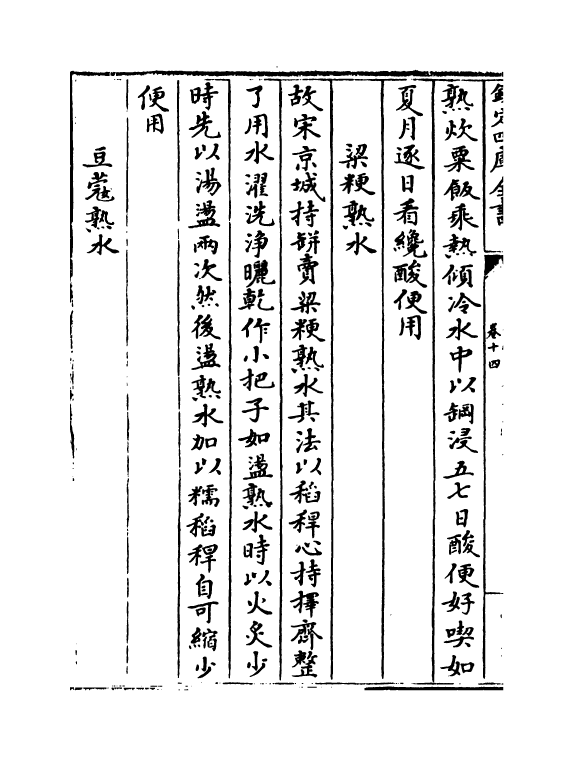 欽定四庫全書
卷十四
熟炊粟飯乘熱傾冷水中以缸浸五七日酸便好喫如
夏月逐日看纔酸便用
梁粳熟水
故宋京城持缾賣梁粳熟水其法以稻稈心持擇齊整
了用水濯洗浄曬乾作小把子如盪熟水時以火炙少
時先以湯盪兩次然後盪熟水加以糯稻稈自可縮少
便用
豆蔻熟水